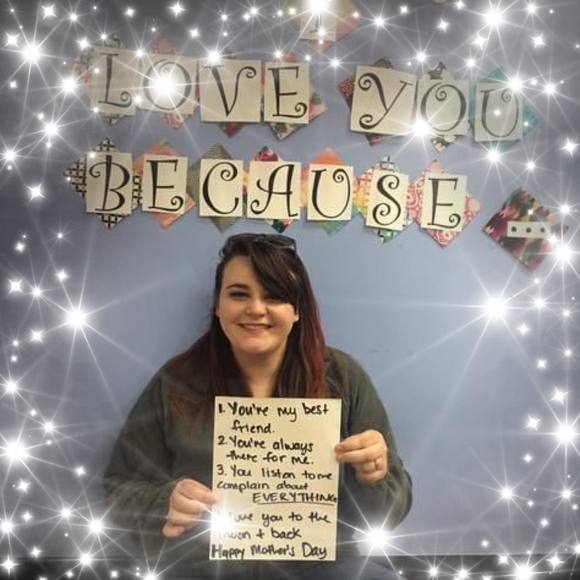 I LOVE YOU
BECAUSE ...
1. You're my best
friend.
2. You're always
there for me.
3. You liston to me
complain about
EVERYTHING
love you to the
moon + back
Happy Mother's Day